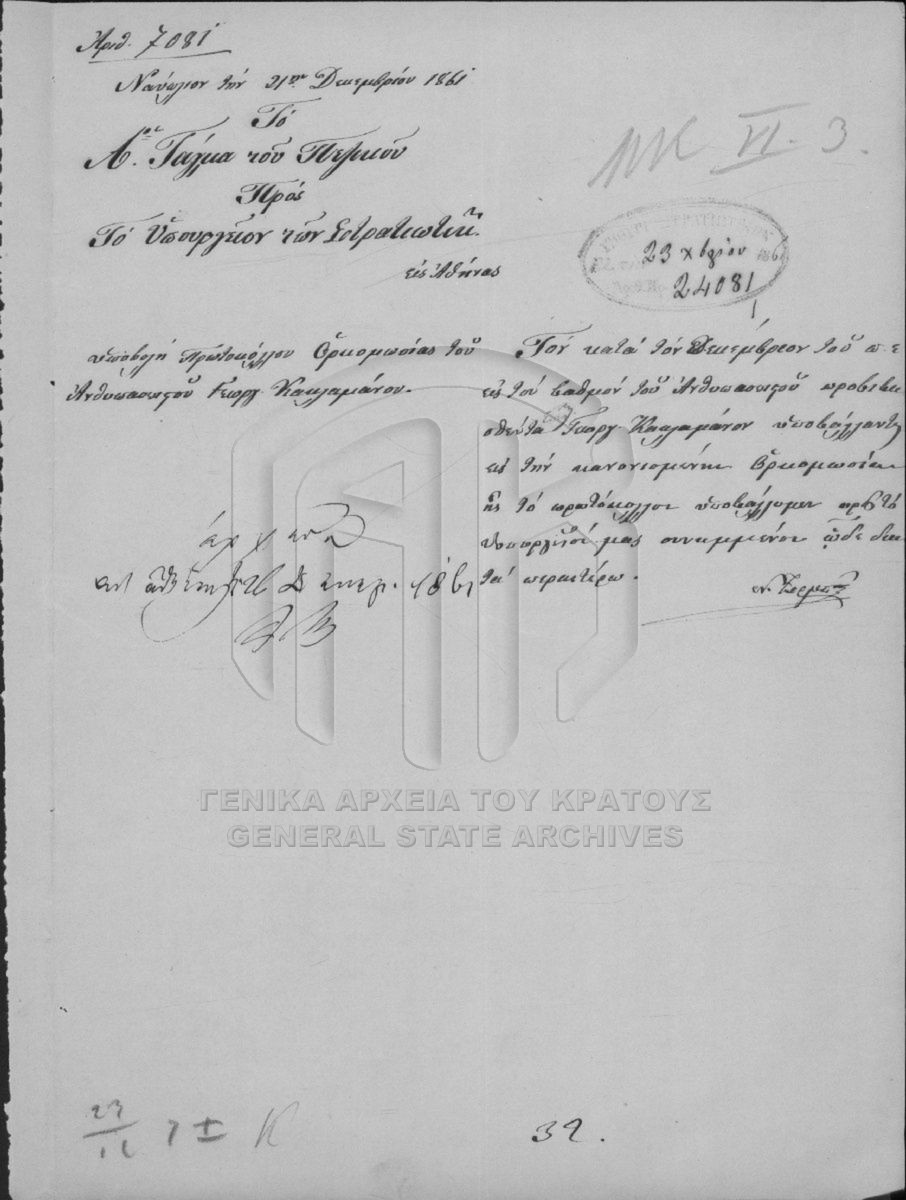 Ἀριθ. 7081
Ναύπλιον τὴν 21ην Δεκεμβρίου 1861
Τό
Αον. Τάγμα τοῦ Πεζικοῦ
Πρός
Τό Ὑπουργεῖον τῶν Στρατιωτικῶν.
εἰς Ἀθήνας
ΜΚ VI. 3.
23 Χβρίου 1861
24081
ὑποβολή Πρωτοκόλλου Ὁρκομωσίας τοῦ
Ἀνθυπασπιστοῦ Γεωργ. Κακλαμάνου.
Τόν κατά τόν Δεκέμβριον τοῦ π. ἔ
εἰς τόν βαθμόν τοῦ Ἀνθυπασπιστοῦ προβιβα
σθέντα Γεωργ. Κακλαμάνον ὑποβάλλαντες
εἰς τὴν κανονισμένην Ὁρκομωσίαν
ἧς τό πρωτόκολλον ὑποβάλλομεν πρός τό
Ὑπουργεῖον μας συνημμένον ὧδε διά
τά περαιτέρω.
1861
ΓΕΝΙΚΑ ΑΡΧΕΙΑ ΤΟΥ ΚΡΑΤΟΥΣ
GENERAL STATE ARCHIVES
32.